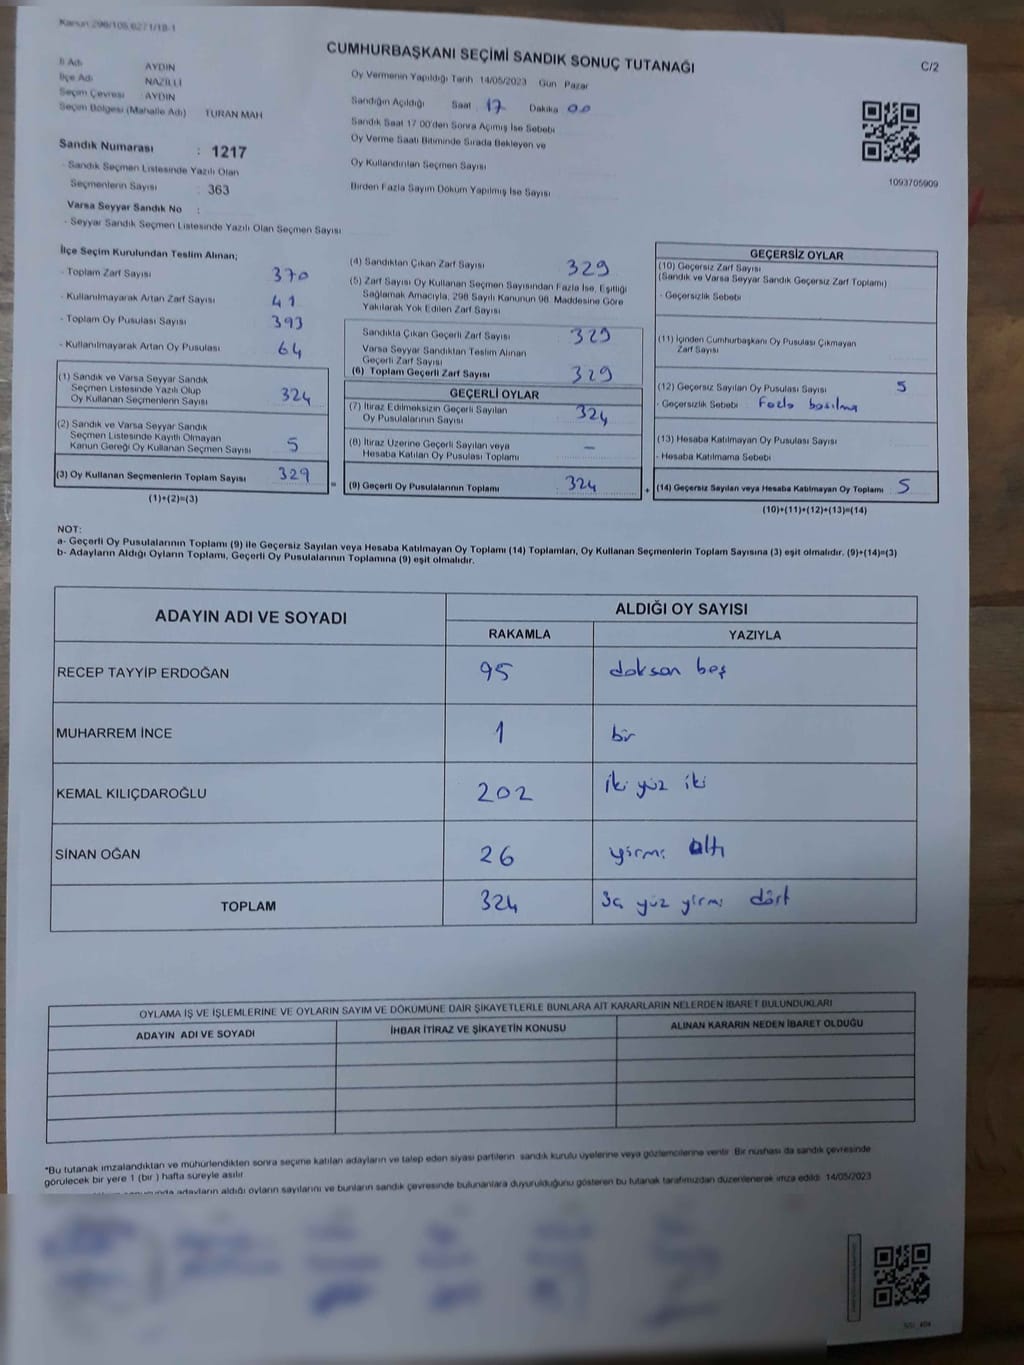 Kanun 298/105,6271/18-1
CUMHURBAŞKANI SEÇİMİ SANDIK SONUÇ TUTANAĞI
C/2
İl Adı AYDIN
İlçe Adı NAZİLLİ
Seçim Çevresi AYDIN
Seçim Bölgesi (Mahalle Adı) TURAN MAH
Oy Vermenin Yapıldığı Tarih 14/05/2023 Gün Pazar
Sandığın Açıldığı Saat 17 Dakika 00
Sandık Saat 17 00'den Sonra Açılmış İse Sebebi
Oy Verme Saati Bitiminde Sırada Bekleyen ve
Oy Kullandırılan Seçmen Sayısı
Birden Fazla Sayım Döküm Yapılmış İse Sayısı
1093705909
Sandık Numarası : 1217
- Sandık Seçmen Listesinde Yazılı Olan
Seçmenlerin Sayısı : 363
Varsa Seyyar Sandık No :
- Seyyar Sandık Seçmen Listesinde Yazılı Olan Seçmen Sayısı
İlçe Seçim Kurulundan Teslim Alınan;
- Toplam Zarf Sayısı 370
- Kullanılmayarak Artan Zarf Sayısı 41
- Toplam Oy Pusulası Sayısı 393
- Kullanılmayarak Artan Oy Pusulası 64
(1) Sandık ve Varsa Seyyar Sandık
Seçmen Listesinde Yazılı Olup
Oy Kullanan Seçmenlerin Sayısı 324
(2) Sandık ve Varsa Seyyar Sandık
Seçmen Listesinde Kayıtlı Olmayan
Kanun Gereği Oy Kullanan Seçmen Sayısı 5
(3) Oy Kullanan Seçmenlerin Toplam Sayısı 329
(1)+(2)=(3)
(4) Sandıktan Çıkan Zarf Sayısı 329
(5) Zarf Sayısı Oy Kullanan Seçmen Sayısından Fazla İse, Eşitliği
Sağlamak Amacıyla, 298 Sayılı Kanunun 98. Maddesine Göre
Yakılarak Yok Edilen Zarf Sayısı
Sandıkta Çıkan Geçerli Zarf Sayısı 329
Varsa Seyyar Sandıktan Teslim Alınan
Geçerli Zarf Sayısı
(6) Toplam Geçerli Zarf Sayısı 329
GEÇERLİ OYLAR
(7) İtiraz Edilmeksizin Geçerli Sayılan
Oy Pusulalarının Sayısı 324
(8) İtiraz Üzerine Geçerli Sayılan veya
Hesaba Katılan Oy Pusulası Toplamı –
= (9) Geçerli Oy Pusulalarının Toplamı 324
GEÇERSİZ OYLAR
(10) Geçersiz Zarf Sayısı
(Sandık ve Varsa Seyyar Sandık Geçersiz Zarf Toplamı)
- Geçersizlik Sebebi
(11) İçinden Cumhurbaşkanı Oy Pusulası Çıkmayan
Zarf Sayısı
(12) Geçersiz Sayılan Oy Pusulası Sayısı 5
- Geçersizlik Sebebi Fazla basılma
(13) Hesaba Katılmayan Oy Pusulası Sayısı
- Hesaba Katılmama Sebebi
+ (14) Geçersiz Sayılan veya Hesaba Katılmayan Oy Toplamı 5
(10)+(11)+(12)+(13)=(14)
NOT:
a- Geçerli Oy Pusulalarının Toplamı (9) ile Geçersiz Sayılan veya Hesaba Katılmayan Oy Toplamı (14) Toplamları, Oy Kullanan Seçmenlerin Toplam Sayısına (3) eşit olmalıdır. (9)+(14)=(3)
b- Adayların Aldığı Oyların Toplamı, Geçerli Oy Pusulalarının Toplamına (9) eşit olmalıdır.
ADAYIN ADI VE SOYADI ALDIĞI OY SAYISI
RAKAMLA YAZIYLA
RECEP TAYYİP ERDOĞAN 95 doksan beş
MUHARREM İNCE 1 bir
KEMAL KILIÇDAROĞLU 202 iki yüz iki
SİNAN OĞAN 26 yirmi altı
TOPLAM 324 üç yüz yirmi dört
OYLAMA İŞ VE İŞLEMLERİNE VE OYLARIN SAYIM VE DÖKÜMÜNE DAİR ŞİKAYETLERLE BUNLARA AİT KARARLARIN NELERDEN İBARET BULUNDUKLARI
ADAYIN ADI VE SOYADI İHBAR İTİRAZ VE ŞİKAYETİN KONUSU ALINAN KARARIN NEDEN İBARET OLDUĞU
*Bu tutanak imzalandıktan ve mühürlendikten sonra seçime katılan adayların ve talep eden siyasi partilerin sandık kurulu üyelerine veya gözlemcilerine verilir. Bir nushası da sandık çevresinde
görülecek bir yere 1 (bir ) hafta süreyle asılır.
adayların aldığı oyların sayılarını ve bunların sandık çevresinde bulunanlara duyurulduğunu gösteren bu tutanak tarafımızdan düzenlenerek imza edildi. 14/05/2023